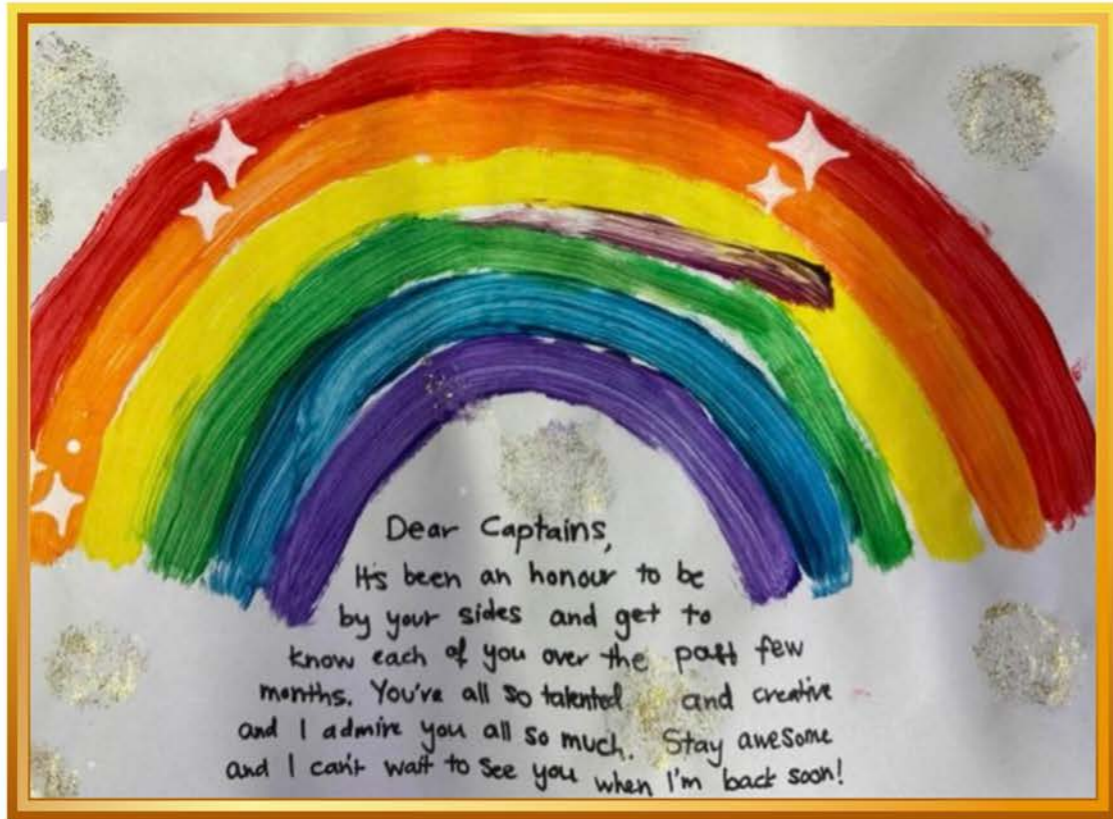 Dear Captains,
It's been an honour to be
by your sides and get to
know each of you over the past few
months. You've all so talented and creative
and I admire you all so much. Stay awesome
and I can't wait to see you when I'm back soon!